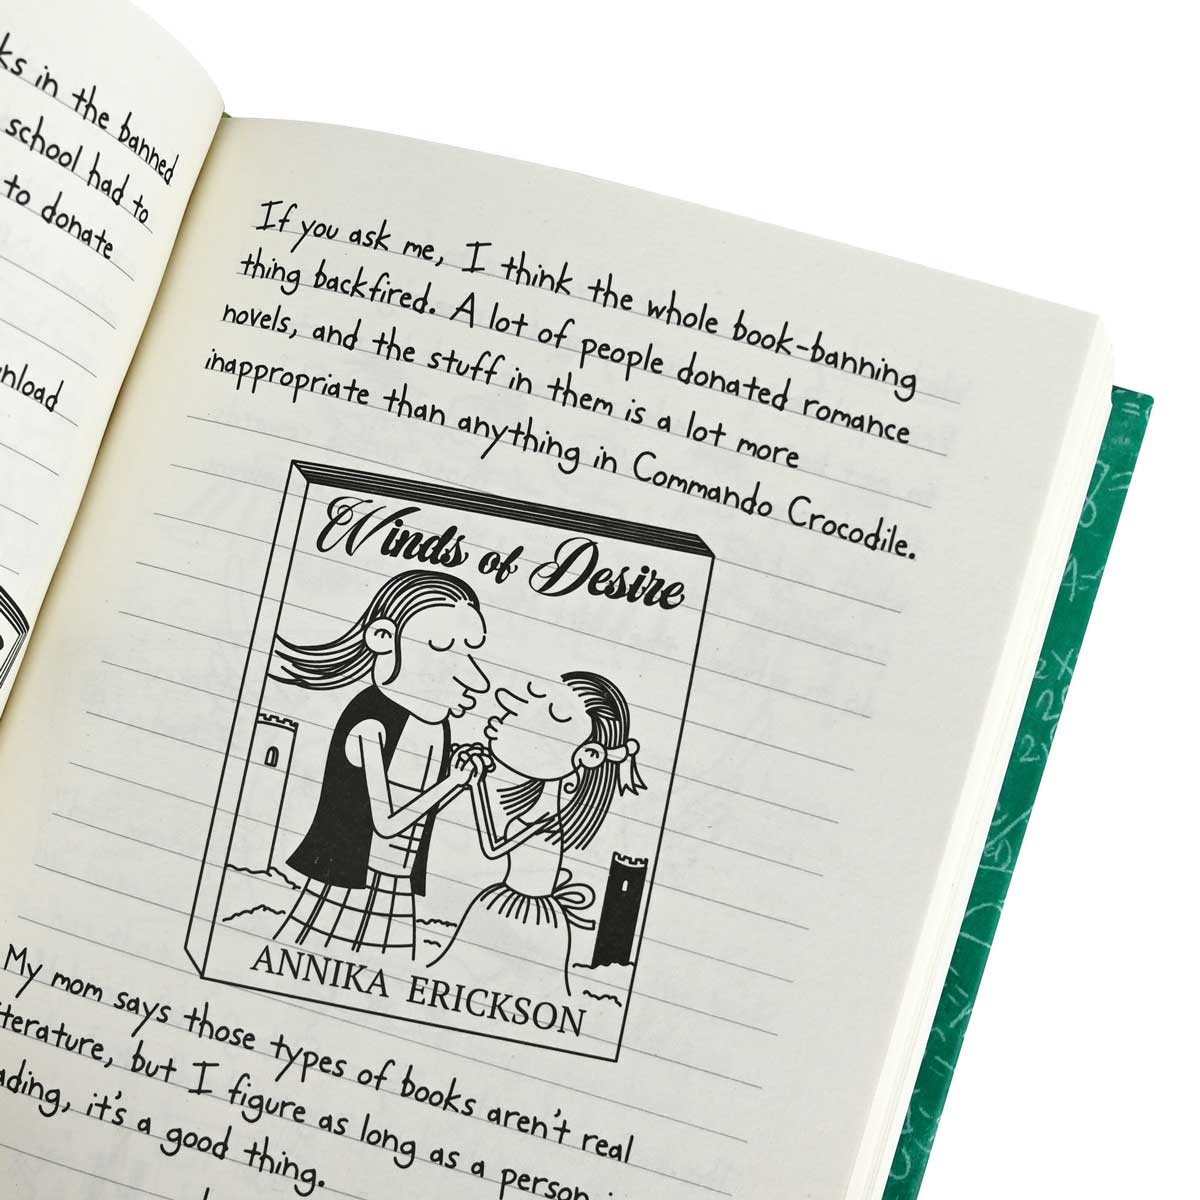 in the banned
school had to
to donate
If you ask me, I think the whole book-banning
thing backfired. A lot of people donated romance
novels, and the stuff in them is a lot more
inappropriate than anything in Commando Crocodile.
Winds of Desire
ANNIKA ERICKSON
My mom says those types of books aren't real
but I figure as long as a person
it's a good thing.